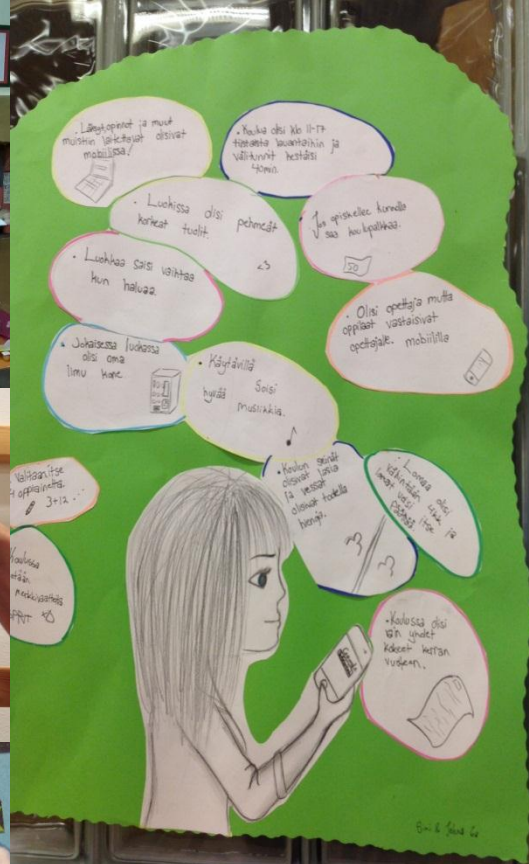 • Läksyt, opinnot ja muut
muistiin laitettavat olisivat
mobiilissa!
• Koulua olisi klo 11-17
tiistaista lauantaihin ja
välitunnit kestäisi
40min.
• Luokissa olisi pehmeät
korkeat tuolit.
<3
• Jos opiskellee kunnolla
saa koulupalkkaa.
50
• Luokkaa saisi vaihtaa
kun haluaa.
• Olisi opettaja mutta
oppilaat vastaisivat
opettajalle mobiililla
• Jokaisessa luokassa
olisi oma
ilmu kone.
• Käytävillä
soisi
hyvää musiikkia.
• Koulun seinät
olisivat lasia
ja vessat
olisivat todella
hienoja.
• Lomaa olisi
vähintään 4kk ja
lomat saisi itse
päättää.
Valitaan itse
oppiainetta.
3+12...
Koulussa
merkkivaatteita
• Koulussa olisi
vain yhdet
kokeet kerran
vuoteen.